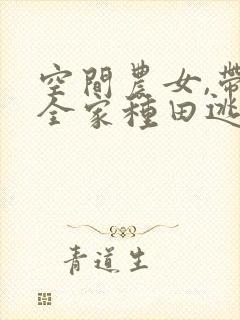 空間農女,帶
全家種田逃
青道生